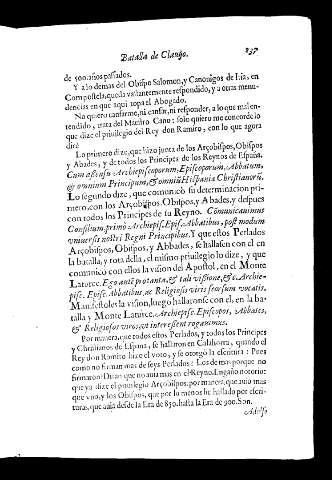 Batalla de Clauijo. 237
de 500. años passados.
Y a lo demas del Obispo Salomon, y Canonigos de Iria, en
Compostela, queda bastantemente respondido, y a otras menu-
dencias en que aqui topa el Abogado.
No quiero cansarme, ni cansar, ni responder, a lo que mal en-
tendido, trata del Martiro Cano: solo quiero me concorde lo
que dize el priuilegio del Rey don Ramiro, con lo que agora
diré
Lo primero dize, que hizo junta de los Arçobispos, Obispos
y Abades, y de todos los Principes de los Reynos de España.
Cum assensu Archiepiscoporum, Episcoporum, Abbatum,
& omnium Principum, & omniũ Hispaniæ Christianorũ.
Lo segundo dize, que comunicó su determinacion pri-
mero, con los Arçobispos, Obispos, y Abades, y despues
con todos los Principes de su Reyno. Cõmunicauimus
Consilium, primò Archiepisc. Episc. Abbatibus, post modum
vniuersis nostri Regni Principibus. Y que estos Perlados
Arçobispos, Obispos, y Abbades, se hallasen con el en
la batalla, y rota della, el mismo priuilegio lo dize, y que
comunicó con ellos la vision del Apostol, en el Monte
Laturce. Ego autẽ protanta, & tali visione, &c. Archie-
pisc. Episc. Abbatibus, ac Religiosis viris seorsum vocatis.
Manifestoles la vision, luego hallaronse con el, en la ba-
talla y Monte Laturce. Archiepisc. Episcopos, Abbates,
& Religiosos viros, vt interessent rogauimus.
Por manera, que todos estos Perlados, y todos los Principes
y Christianos de España, se hallaron en Calahorra, quando el
Rey don Ramiro hizo el voto, y se otorgò la escritura: Pues
como no firman mas de seys Perlados? Los demas porque no
firmaron? Diran que no auia mas en el Reyno. Engaño notorio:
que ya dize el priuilegio Arçobispos, por manera, que auia mas
que vno, y los Obispos, que por lo menos he hallado por escri-
turas, que auia desde la Era de 850. hasta la Era de 900. Son.
Adulfo